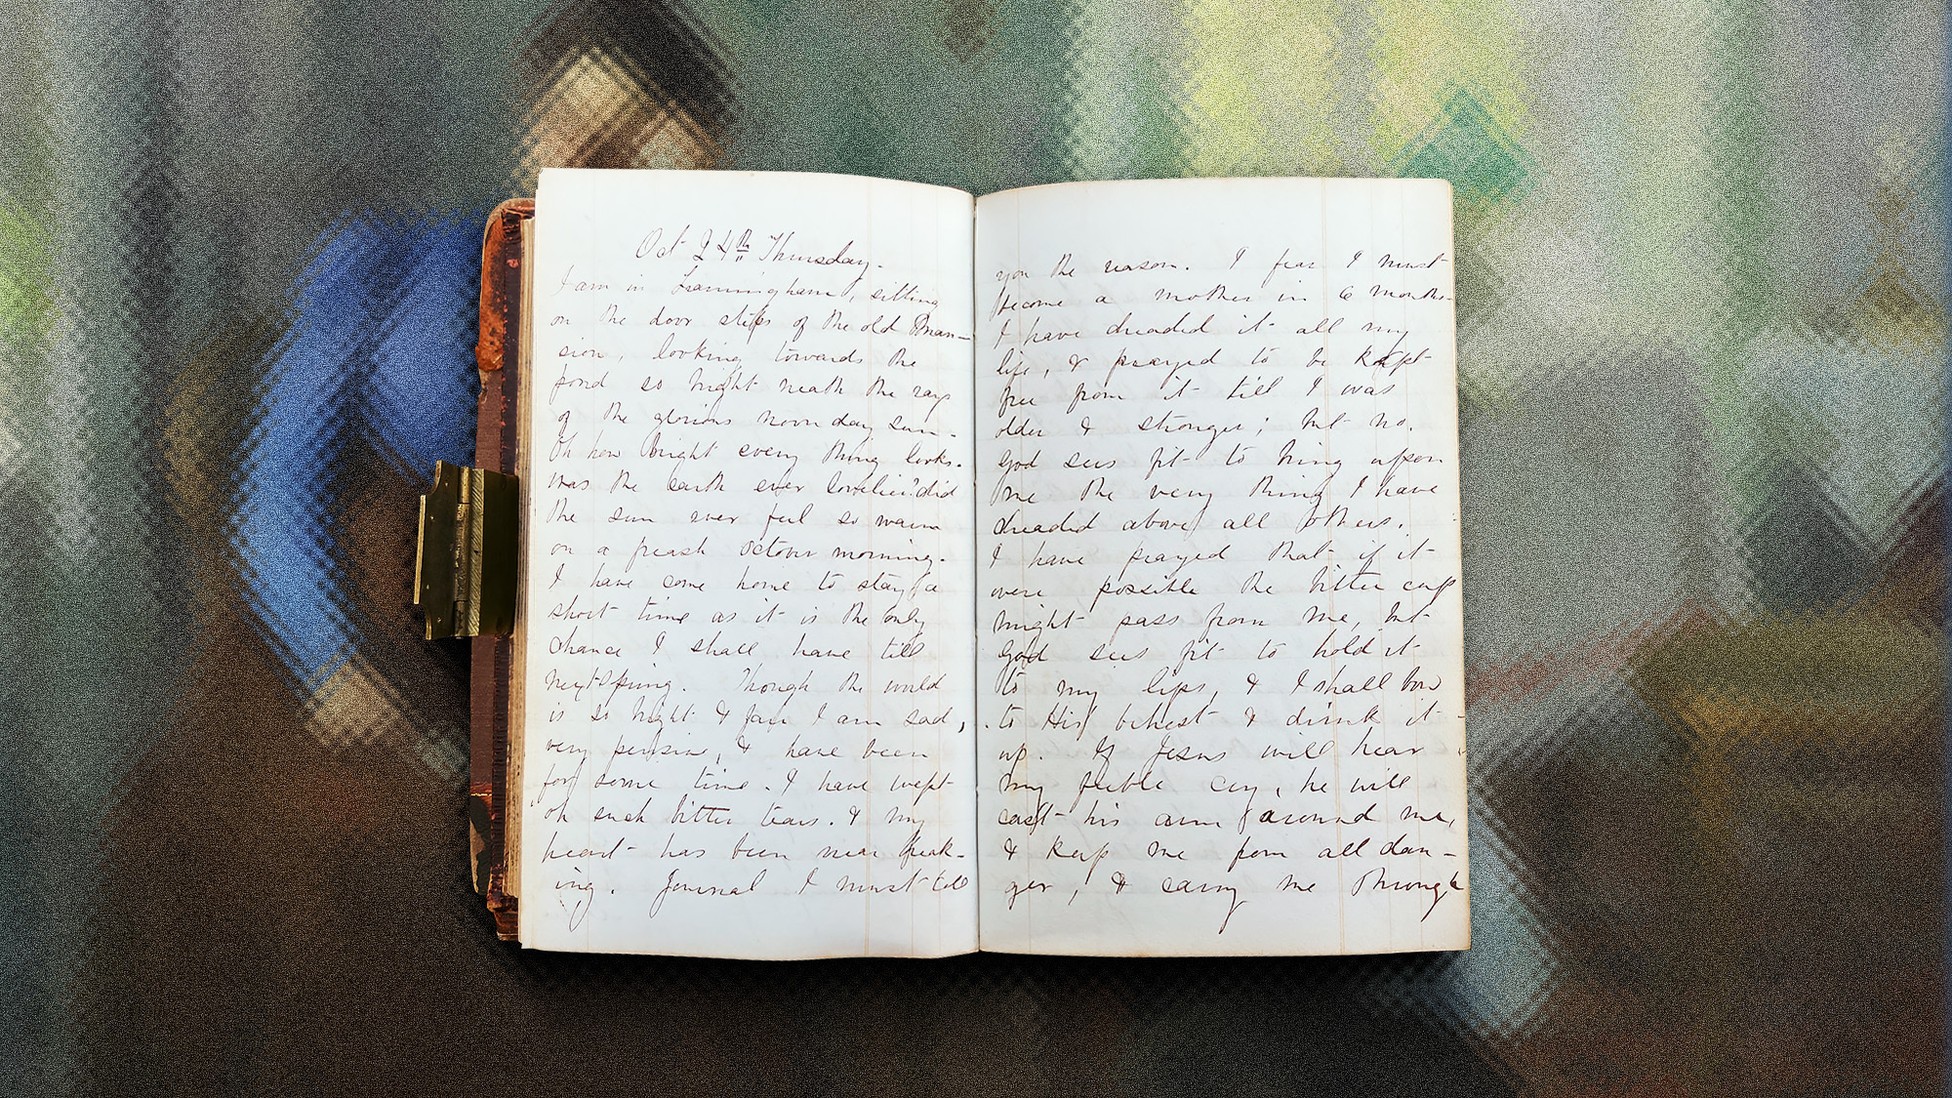 Oct 24th Thursday.
I am in Framingham, sitting
on the door steps of the old Man-
sion, looking towards the
pond so bright neath the rays
of the glorious noon day sun.
Oh how bright every thing looks.
Was the earth ever lovelier? did
the sun ever feel so warm
on a fresh October morning.
I have come home to stay a
short time as it is the only
chance I shall have till
next Spring. Though the world
is so bright & fair I am sad,
very pensive, & have been
for some time. I have wept
oh such bitter tears. & my
heart has been near break-
ing. Journal I must tell
you the reason. I fear I must
become a mother in 6 months.
I have dreaded it all my
life, & prayed to be kept
free from it till I was
older & stronger; but no.
God sees fit to bring upon
me the very thing I have
dreaded above all others.
I have prayed that if it
were possible the bitter cup
might pass from me, but
God sees fit to hold it
to my lips, & I shall bow
to His behest & drink it
up. If Jesus will hear
my feeble cry, he will
cast his arm around me,
& keep me from all dan-
ger, & carry me through